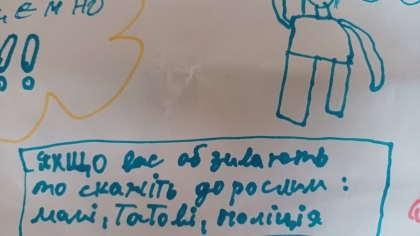 ЄМНО
!!
якщо вас обзивають
то скажіть дорослим:
мамі, татові, поліція